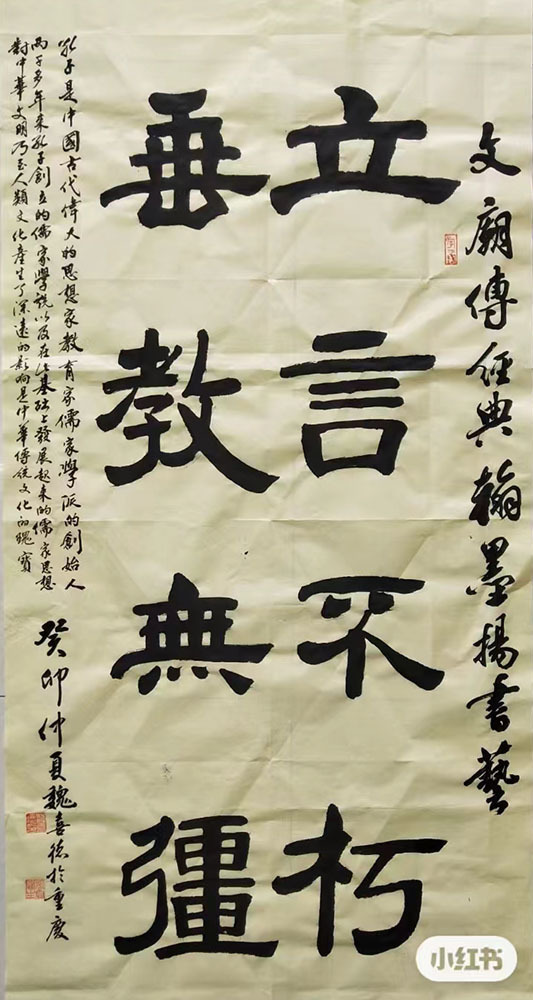 文廟傳經典翰墨揚書藝
立言不朽
垂教無彊
孔子是中國古代偉大的思想家教育家儒家學派的創始人
兩千多年来孔子創立的儒家學説以及在此基础上發展起来的儒家思想
對中華文明乃至人類文化產生了深遠的影响是中華傳統文化的瑰寶
癸卯仲夏魏喜德於重慶
小红书